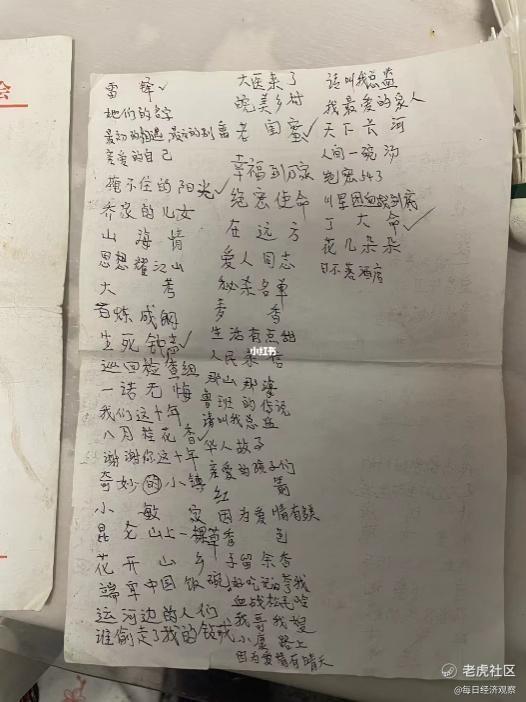 会
雷锋✓
她们的名字
最初的相遇 最后的别离
亲爱的自己
掩不住的阳光✓
乔家的儿女
山海情
思想耀江山
大考
百炼成钢
生死钟声
巡回检查组
一诺无悔
我们这十年
八月桂花香✓
谢谢你这十年
奇妙的小镇
小敏家
昆仑山上一棵草
花开山乡
端牢中国饭碗
运河边的人们
谁偷走了我的
大医来了
皖美乡村
老闺蜜✓
幸福到万家
绝密使命
在远方
爱人同志
秘杀名单
麦香
生活有点甜
人民
那山那海
鲁班的传说
请叫我总监
华人故子
亲爱的孩子们
红箭
因为爱情有
香包
子留余香
好吃
血战松毛岭
我哥我嫂
小康路上
因为爱情有晴天
请叫我总监
我最爱的家人
天下长河
人间一碗汤
绝密543
丁大命✓
花儿朵朵
日不落酒店
小红书
老虎社区
@每日经济观察